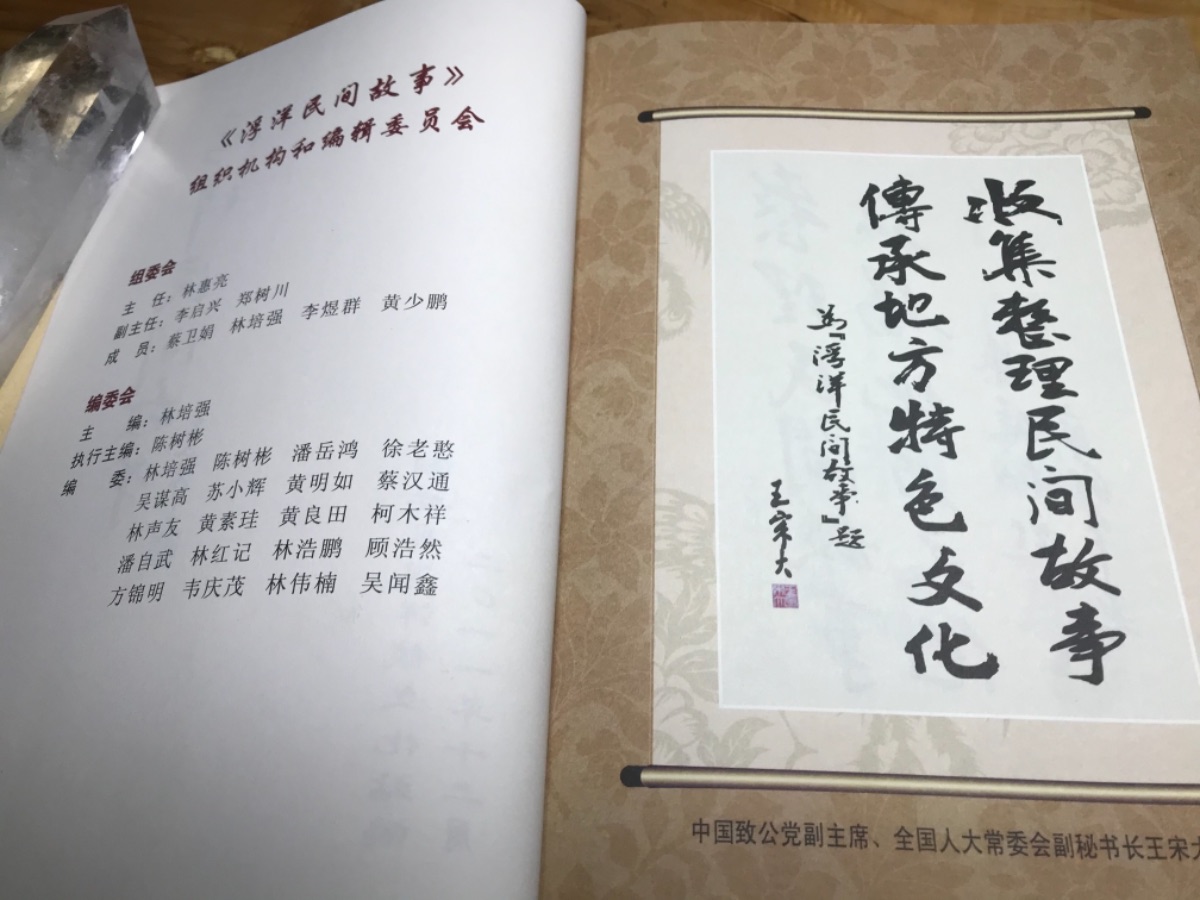 《浮洋民间故事》
组织机构和编辑委员会
组委会
主 任：林惠亮
副主任：李启兴 郑树川
成 员：蔡卫娟 林培强 李煜群 黄少鹏
编委会
主 编：林培强
执行主编：陈树彬
编 委：林培强 陈树彬 潘岳鸿 徐老憨
吴谋高 苏小辉 黄明如 蔡汉通
林声友 黄素珪 黄良田 柯木祥
潘自武 林红记 林浩鹏 顾浩然
方锦明 韦庆茂 林伟楠 吴闻鑫
收集整理民间故事
傳承地方特色文化
为『浮洋民间故事』题
王宋大
中国致公党副主席、全国人大常委会副秘书长王宋大